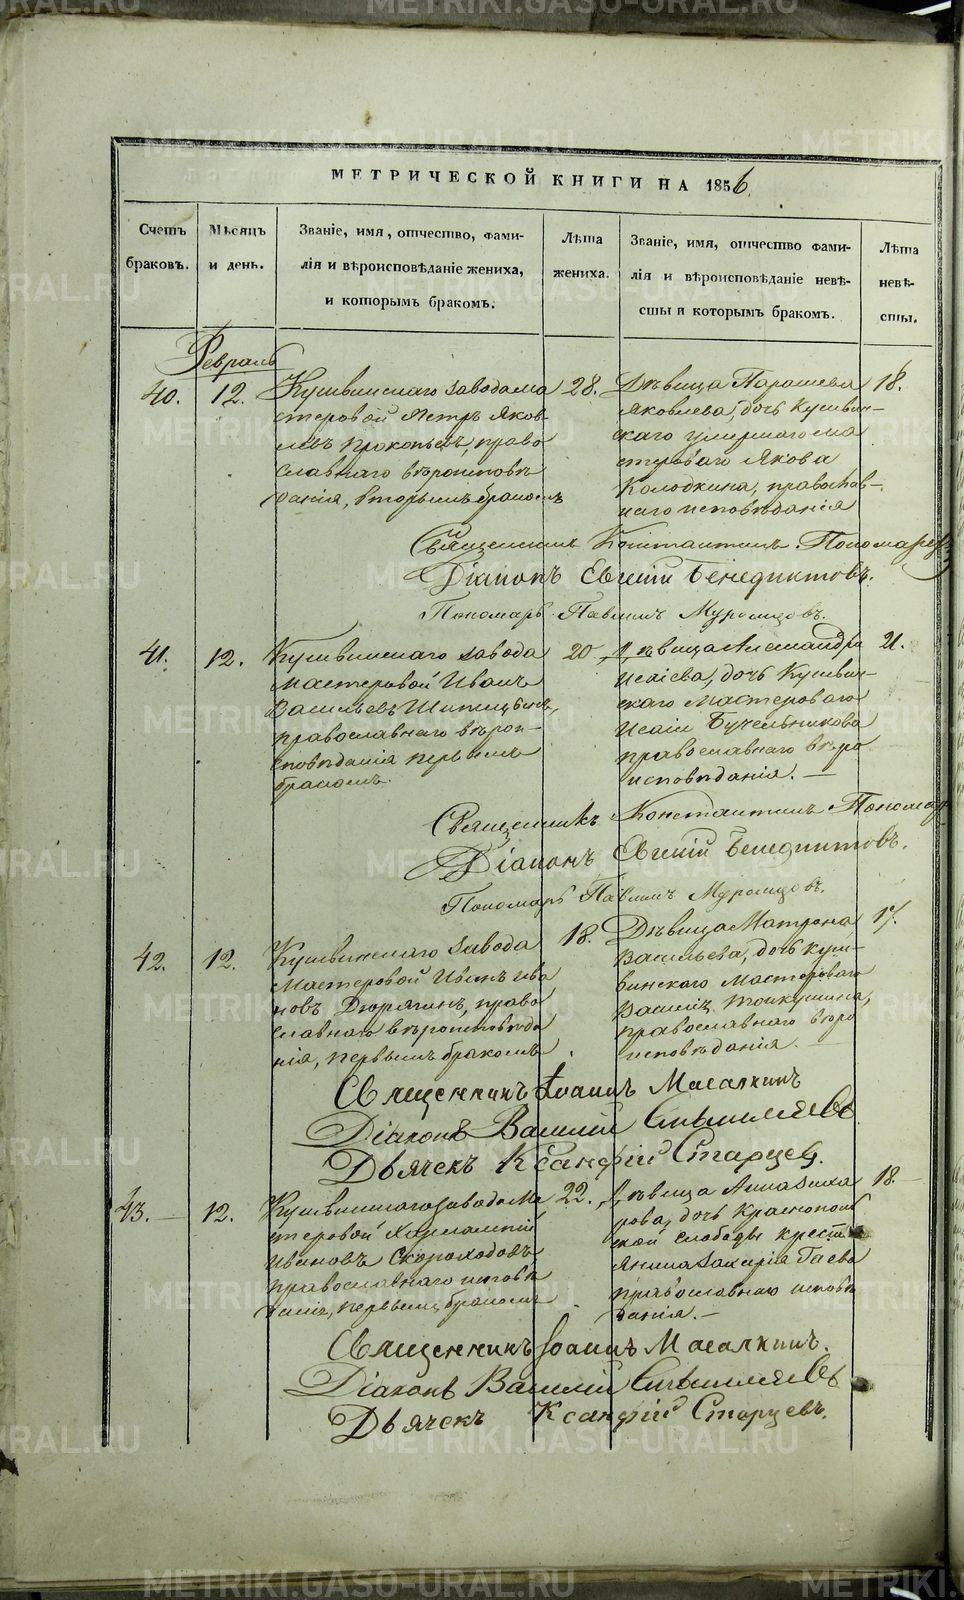 МЕТРИЧЕСКОЙ КНИГИ НА 1856
Счетъ браковъ.
Мѣсяцъ и день.
Званіе, имя, отчество, фами-
лія и вѣроисповѣданіе жениха,
и которымъ бракомъ.
Лѣта
жениха.
Званіе, имя, отчество фами-
лія и вѣроисповѣданіе невѣ-
сты и которымъ бракомъ.
Лѣта
невѣ-
сты.
Февраль
40. 12.
Кушвинскаго завода ма
стеровой Петръ Яков
левъ Прокопьевъ, право
славнаго вѣроисповѣ
данія, вторымъ бракомъ
28.
Дѣвица Парасковья
Яковлева, дочь Кушвин-
скаго умершаго ма
стероваго Якова
Колодкина, православ-
наго исповѣданія
18.
Священникъ Константинъ Пономаревъ
Діаконъ Евгеній Бенедиктовъ.
Пономарь Павлинъ Муромцовъ.
41. 12.
Кушвинскаго завода
мастеровой Иванъ
Васильевъ
православнаго вѣрои-
сповѣданія первымъ
бракомъ.
20
Дѣвица Александра
Исаіева, дочь Кушвин-
скаго мастероваго
Исаіи Бучельникова
православнаго вѣро
исповѣданія. —
21.
Священникъ Константинъ Пономар
Діаконъ Евгеній Бенедиктовъ.
Пономарь Павлинъ Муромцовъ.
42. 12.
Кушвинскаго завода
мастеровой Иванъ Ива
новъ Дюрягинъ, право
славнаго вѣроисповѣда
нія, первымъ бракомъ
18.
Дѣвица Матрона
Васильева, дочь Куш-
винскаго мастероваго
Василія
православнаго вѣро
исповѣданія. —
17.
Священникъ Іоаннъ Масалкинъ
Діаконъ Василій
Дьячекъ Ксанфій Старцевъ.
43. — 12.
Кушвинскаго завода ма
стеровой Харлампій
Ивановъ Скороходовъ
православнаго исповѣ
данія, первымъ бракомъ
22.
Дѣвица Анна Заха
рова, дочь Краснополь
ской слободы крестья
янина Захарія Гаева
православнаго исповѣ
данія. —
18.
Священникъ Іоаннъ Масалкинъ.
Діаконъ Василій
Дьячекъ Ксанфій Старцевъ.
METRIKI.GASO-URAL.RU